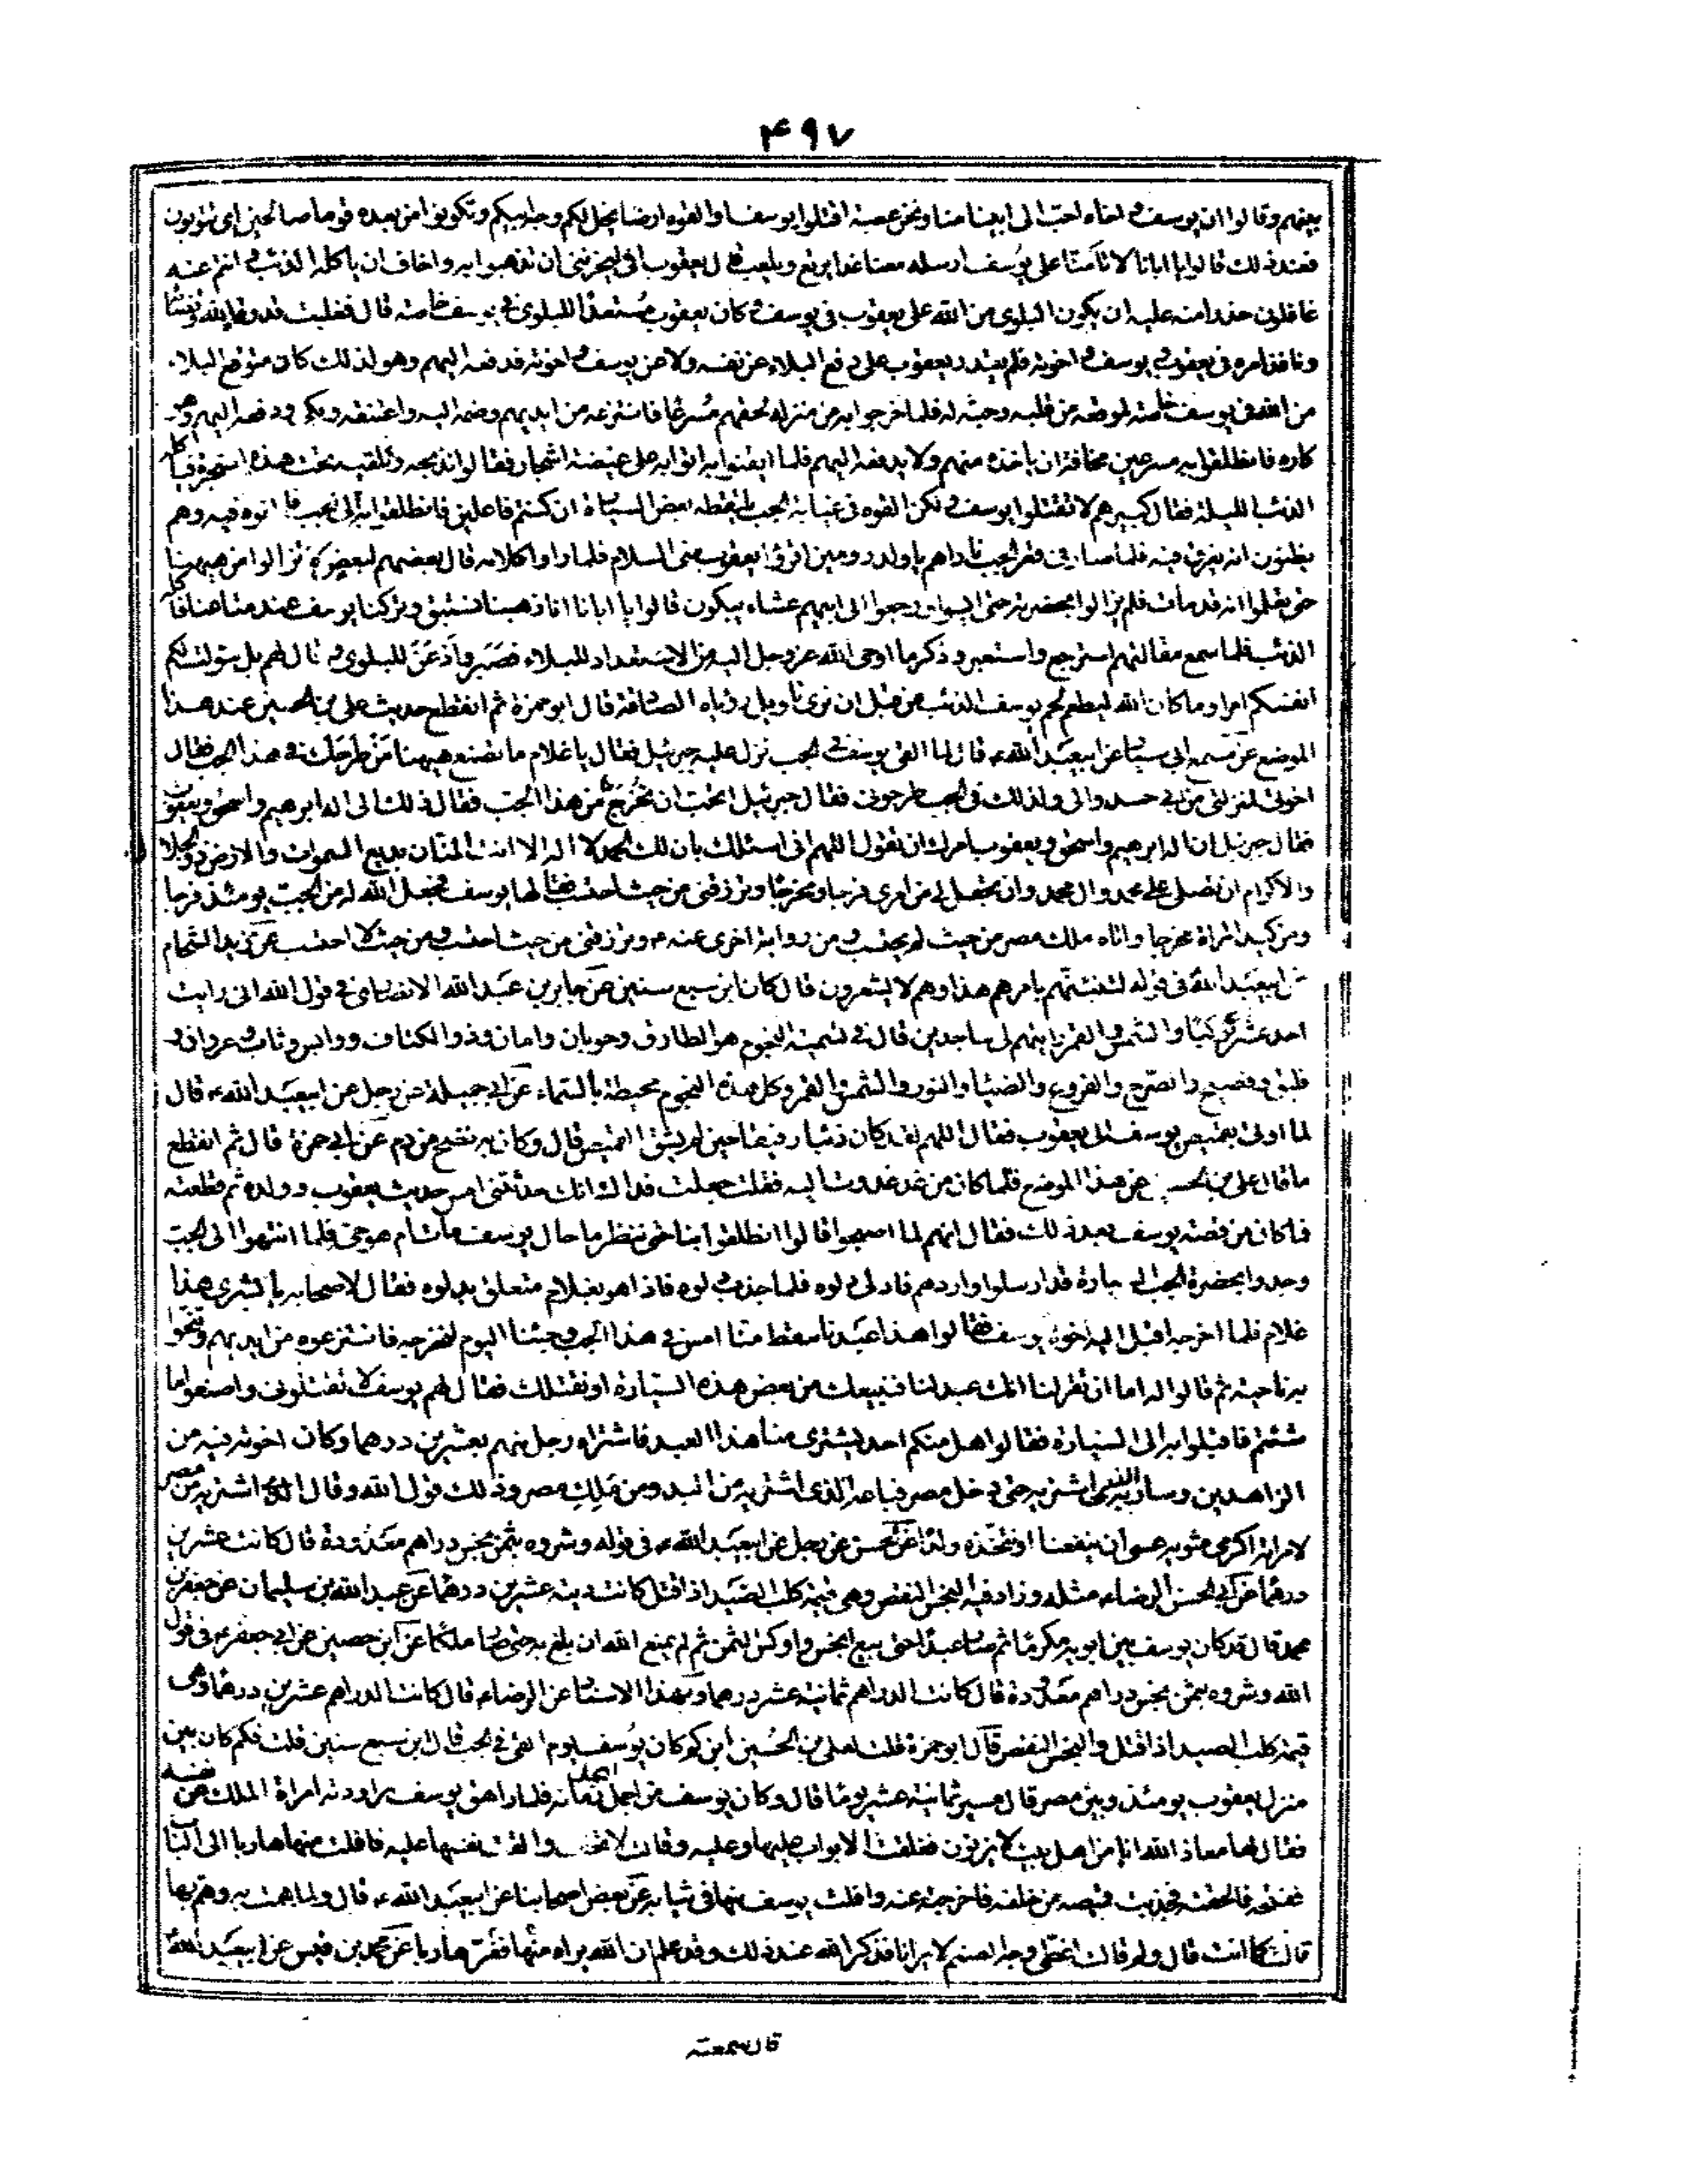 ۴۹۷
بينهم وقالوا ان يوسف و اخاه احب الى ابينا منا ونحن عصبة اقتلوا يوسف او القوه ارضا يخل لكم وجه ابيكم وتكونوا من بعده قوما صالحين اى تتوبون
فعند ذلك قالوا يا ابانا لا تأمنا على يوسف ارسله معنا غدا يرتع ويلعب قال يعقوب انى ليحزننى ان تذهبوا به واخاف ان ياكله الذئب و انتم عنه
غافلون حذرا منه عليه ان يكون البلوى من الله على يعقوب فى يوسف و كان يعقوب مستعدا للبلوى فى يوسف خاصته قال فغلبت قدرة الله وقضائه
ونافذ امره فى يعقوب و يوسف و اخوته فلم يقدر يعقوب على دفع البلاء عن نفسه ولا عن يوسف و اخوته فدفعه اليهم وهو لذلك كاره متوقع البلاء
من الله فى يوسف خاصته لموضعه من قلبه وحبه له فلما خرجوا به من منزله لحقهم مسرعا فانتزعه من ايديهم وضمه اليه واعتنقه وبكى ودفعه اليهم وهو
كاره فانطلقوا به مسرعين مخافة ان ياخذه منهم ولا يدفعه اليهم فلما ايقنوا به اتوا به على غيضة اشجار فقالوا نذبحه ونلقيه تحت هذه الشجرة فياكله
الذئب الليلة فقال كبيرهم لا تقتلوا يوسف و لكن القوه فى غيابة الجب يلتقطه بعض السيارة ان كنتم فاعلين فانطلقوا به الى الجب فالقوه فيه وهم
يظنون انه يغرق فيه فلما صار فى قعر الجب ناداهم يا ولد رومين اقرؤا يعقوب منى السلام فلما راوا كلامه قال بعضهم لبعض لا تزالوا من ههنا
حتى تعلموا انه قد مات فلم يزالوا بحضرته حتى ايسوا و رجعوا الى ابيهم عشاء يبكون قالوا يا ابانا انا ذهبنا نستبق وتركنا يوسف عند متاعنا فاكله
الذئب فلما سمع مقالتهم استرجع واستعبر وذكر ما اوحى الله عز وجل اليه من الاستعداد للبلاء فصبر واذعن للبلوى و قال لهم بل سولت لكم
انفسكم امرا وما كان الله ليطعم لحم يوسف الذئب من قبل ان نرى تاويل رؤياه الصادقة قال ابو حمزة ثم انقطع حديث على بن الحسين عند هذا
الموضع عن مسمع ابى سيار عن ابيعبد الله ع قال لما القى يوسف فى الجب نزل عليه جبرئيل فقال يا غلام ما تصنع ههنا من طرحك فى هذا الجب فقال
اخوتى لمنزلتى من ابى حسدوالى ولذلك فى الجب طرحونى فقال جبرئيل اتحب ان تخرج من هذا الجب فقال ذلك الى اله ابرهيم واسحق ويعقوب
فقال جبرئيل ان اله ابرهيم واسحق ويعقوب يامرك ان تقول اللهم انى اسئلك بان لك الحمد لا اله الا انت المنان بديع السموات والارض ذو الجلال
والاكرام ان تصلى على محمد وال محمد وان تجعل لى من امرى فرجا ومخرجا وترزقنى من حيث احتسب فقالها يوسف فجعل الله له من الجب يومئذ فرجا
ومن كيد المراة مخرجا واتاه ملك مصر من حيث لم يحتسب و من رواية اخرى عنه ع وترزقنى من حيث احتسب و من حيث لا احتسب عن زيد الشحام
عن ابيعبد الله فى قوله لتنبئنهم بامرهم هذا وهم لا يشعرون قال كان ابن سبع سنين عن جابر بن عبد الله الانصارى فى قول الله انى رايت
احد عشر كوكبا والشمس و القمر رايتهم لى ساجدين قال فى تسمية النجوم هو الطارق وحوبان وامان وذو الكتاف ووابس وثاب و عردان و
فليق و فصيح و الصرح والفروع والضيا والنور و الشمس و القمر وكل هذه النجوم محيطة بالسماء عن ابى جميلة عن رجل عن ابيعبد الله ع قال
لما اوتى بقميص يوسف الى يعقوب فقال اللهم لقد كان ذئبا رفيقا حين لم يشق القميص قال وكان به نضح من دم عن ابى حمزة قال ثم انقطع
ما قال على بن الحسين عن هذا الموضع فلما كان من غد غدوت اليه فقلت جعلت فداك انك حدثتنى امس حديث يعقوب و ولده ثم قطعته
فما كان من قصة يوسف بعد ذلك فقال انهم لما اصبحوا قالوا انطلقوا بنا حتى ننظر ما حال يوسف مات ام هو حى فلما انتهوا الى الجب
وجدوا بحضرة الجب الى سيارة قد ارسلوا واردهم فادلى دلوه فلما جذب دلوه فاذا هو بغلام متعلق بدلوه فقال لاصحابه يا بشرى هذا
غلام فلما اخرجه اقبل اليه اخوة يوسف فقالوا هذا عبدنا سقط منا امس فى هذا الجب و جئنا اليوم لنخرجه فانتزعوه من ايديهم وتنحوا
به ناحية ثم قالوا له اما ان تقر لنا انك عبد لنا فنبيعك من بعض هذه السيارة او نقتلك فقال لهم يوسف لا تقتلونى واصنعوا ما
شئتم فاقبلوا به الى السيارة فقالوا هل منكم احد يشترى منا هذا العبد فاشتراه رجل منهم بعشرين درهما وكان اخوته فيه من
الزاهدين وسار به الذى اشتريه حتى دخل مصر فباعه الذى اشتريه من البدو من ملك مصر وذلك قول الله وقال الذى اشتريه من مصر
لامراته اكرمى مثويه عسى ان ينفعنا او نتخذه ولدا عن الحسن عن رجل عن ابيعبد الله ع فى قوله وشروه بثمن بخس دراهم معدودة قال كانت عشرين
درهما عن ابى الحسن الرضاء مثله وزاد فيه البخس النقص وهى قيمة كلب الصيد اذا قتل كانت ديته عشرين درهما عن عبد الله بن سليمان عن جعفر بن
محمد قال قد كان يوسف بين ابويه مكرما ثم صار عبدا حتى بيع بخس و اوكس الثمن ثم لم يمنع الله ان بلغ به حتى صار ملكا عن ابن حصين عن ابى جعفر ع فى قول
الله وشروه بثمن بخس دراهم معدودة قال كانت الدراهم ثمانية عشر درهما و بهذا الاسناد عن الرضاء قال كانت الدراهم عشرين درهما وهى
قيمة كلب الصيد اذا قتل و البخس النقص قال ابو حمزة قلت لعلى بن الحسين ابن كم كان يوسف يوم القى فى الجب قال ابن سبع سنين قلت فكم كان بين
منزل يعقوب يومئذ وبين مصر قال مسير ثمانية عشر يوما قال وكان يوسف من اجمل اهل زمانه فلما راهق يوسف راودته امراة الملك عن نفسه
فقال لها معاذ الله انا من اهل بيت لا يزنون فغلقت الابواب عليها وعليه وقالت لا تخف والقت نفسها عليه فافلت منها هاربا الى الباب
ففتحه فالحقت فجذبت قميصه من خلفه فاخرجته عنه وافلت يوسف منها فى ثيابه عن بعض اصحابنا عن ابيعبد الله ع قال ولما همت به وهم بها
قالت كما انت قال ولم قالت اغطى وجه الصنم لا يرانا فذكر الله عند ذلك وقد علم ان الله يراه منها ففر هاربا عن محمد بن قيس عن ابيعبد الله
قال سمعته